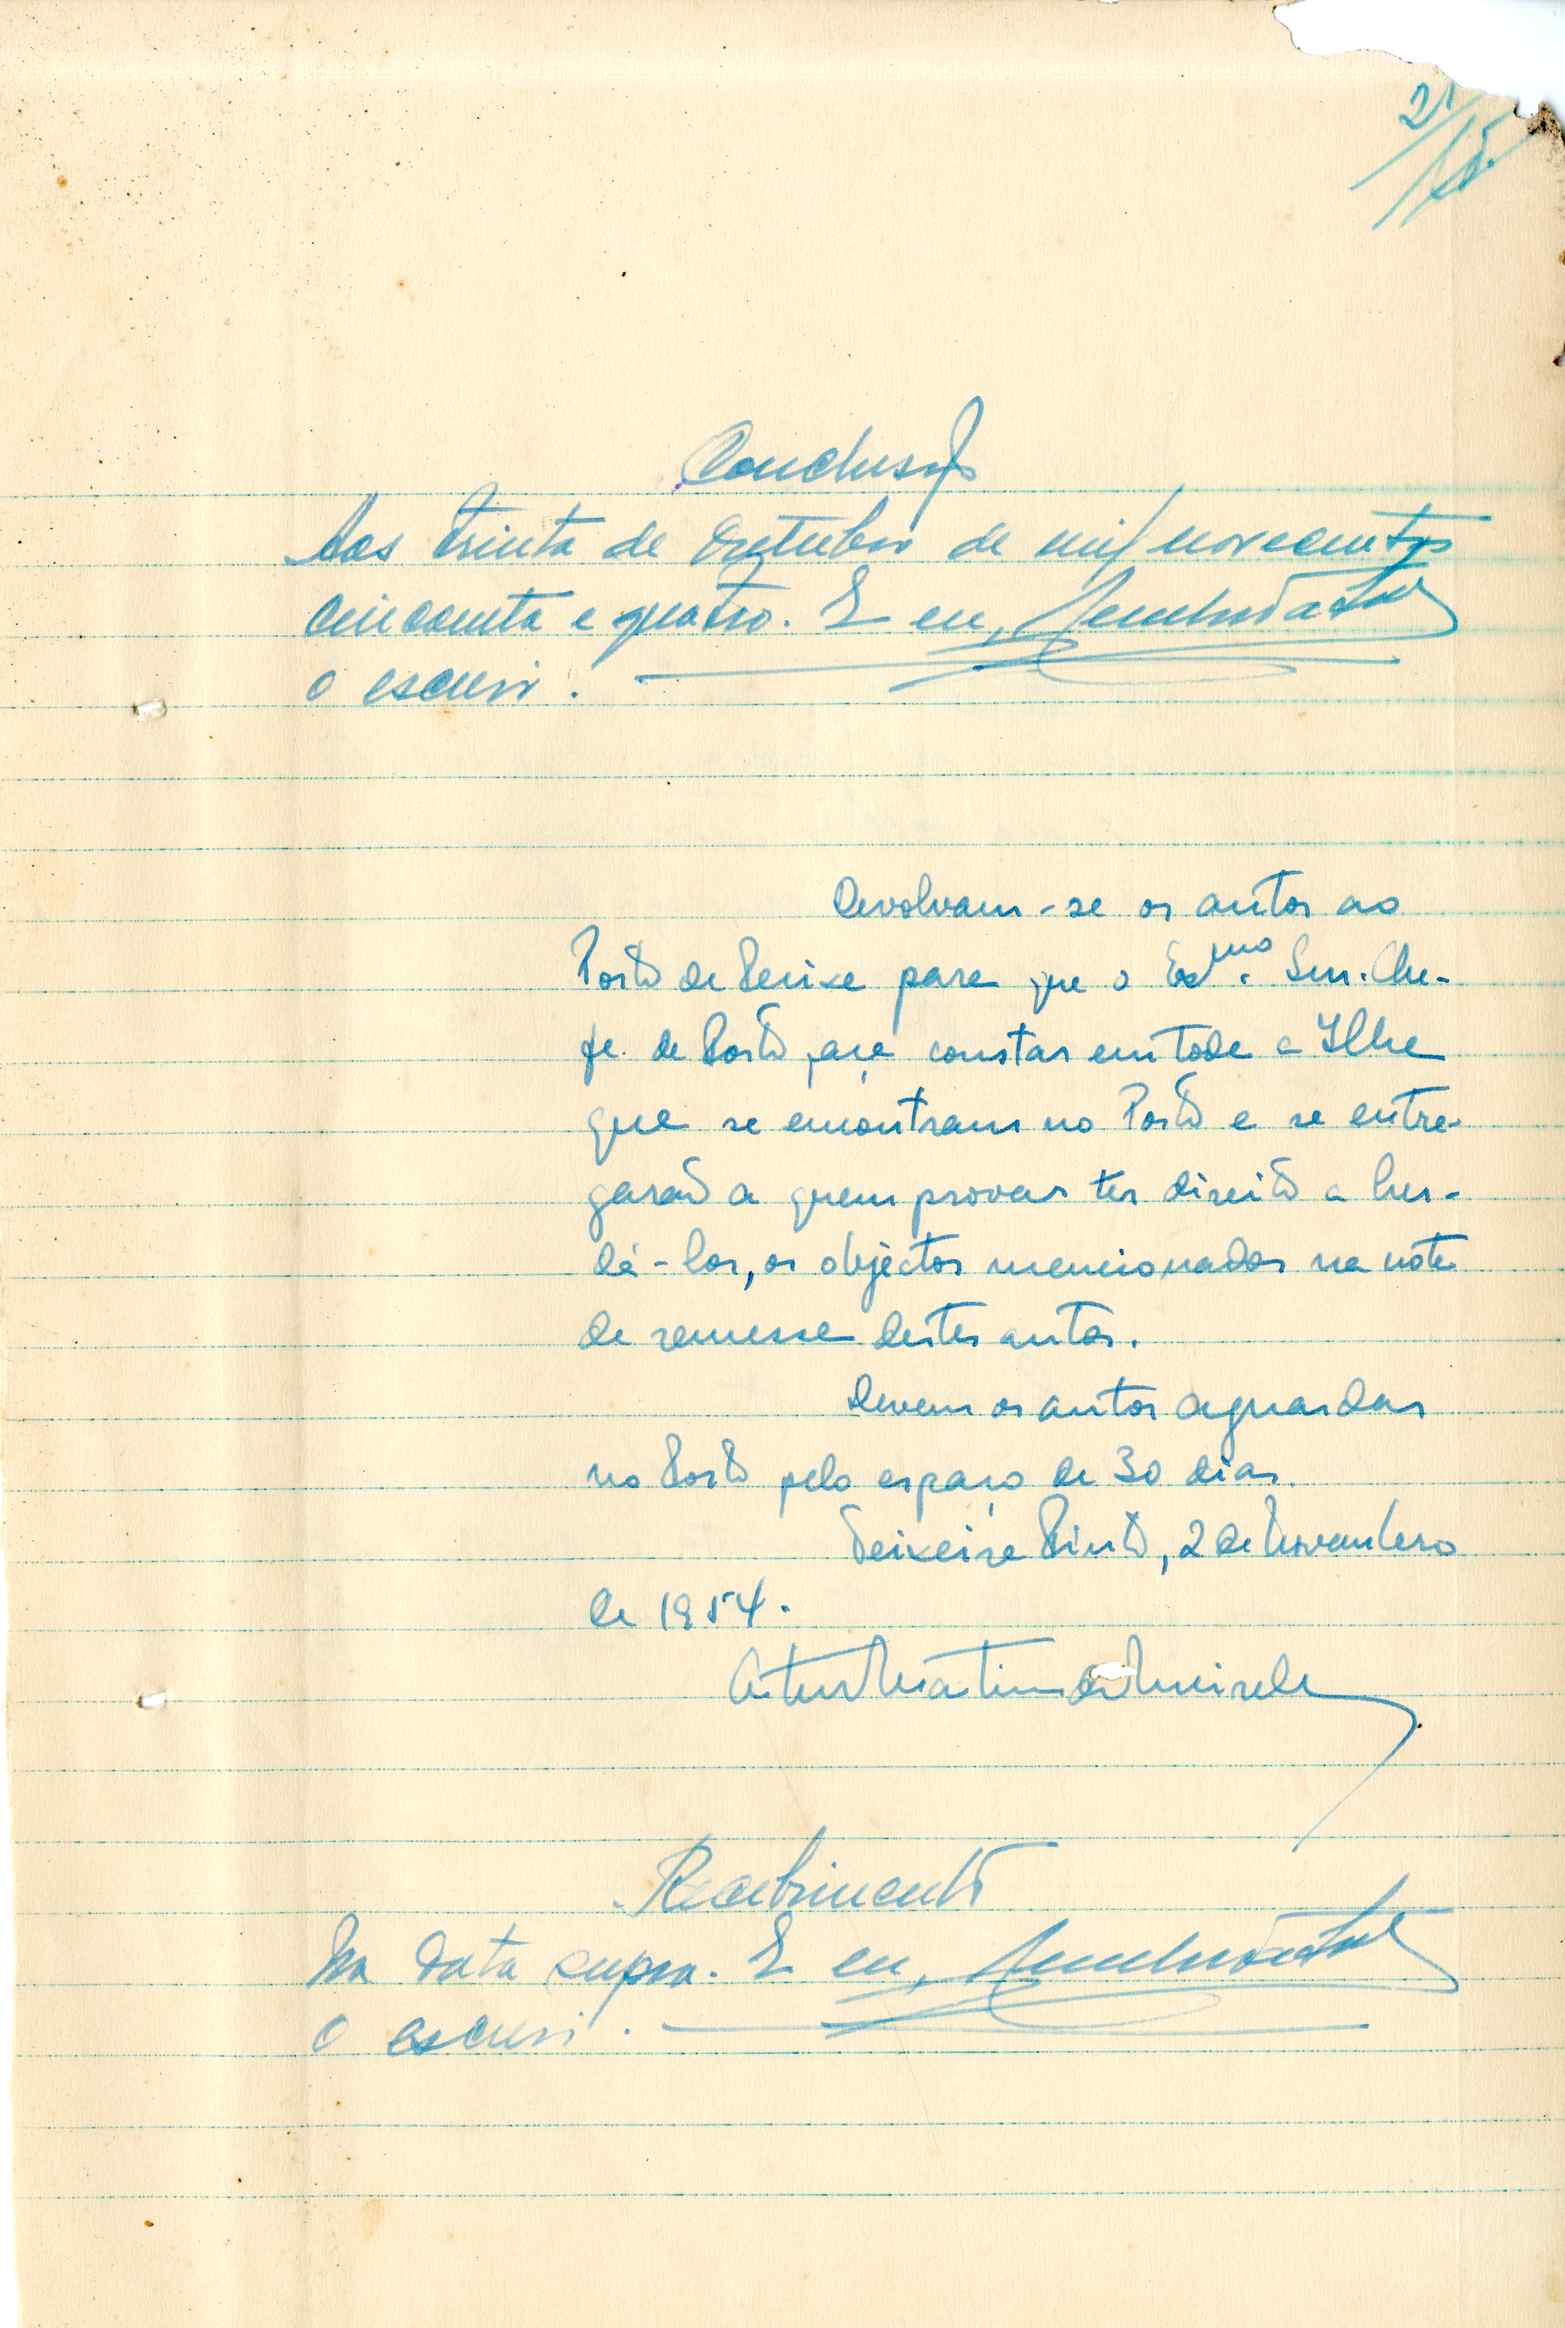 21
Conclusão
Aos trinta de Outubro de mil novecentos
cincoenta e quatro. E eu,
o escrevi.
Devolvam-se os autos ao
Posto de Pecixe para que o Exmo. Snr. Che-
fe de Posto faça constar em toda a Ilha
que se encontram no Posto e se entre-
garão a quem provar ter direito a her-
dá-los, os objectos mencionados na nota
de remessa destes autos.
Devem os autos aguardar
no Posto pelo espaço de 30 dias.
Teixeira Pinto, 2 de Novembro
de 1954.
Artur Martins de Meireles
Recebimento
Na data supra. E eu,
o escrevi.